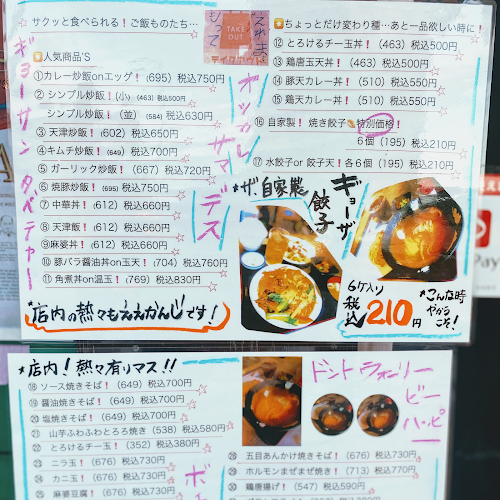 サクッと食べられる！ご飯ものたち…
TAKE OUT
テイクアウト
人気商品'S
①カレー炒飯onエッグ！(695) 税込750円
② シンプル炒飯！(小) (463) 税込500円
シンプル炒飯！(並) (584) 税込630円
③天津炒飯！(602) 税込650円
④キムチ炒飯！(649) 税込700円
⑤ガーリック炒飯！(667) 税込720円
⑥焼豚炒飯！(695) 税込750円
⑦中華丼！(612) 税込660円
⑧天津飯！(612) 税込660円
⑨麻婆丼！(612) 税込660円
⑩豚バラ醤油丼on玉天！(704) 税込760円
⑪角煮丼on温玉！(769) 税込830円
ギョーザン
タベチャー
オツカレ
サマ
デス
店内の熱々もええかんじです！
ちょっとだけ変わり種…あと一品欲しい時に！
⑫とろけるチー玉丼！(463) 税込500円
⑬鶏唐玉天丼！(463) 税込500円
⑭豚天カレー丼！(510) 税込550円
⑮鶏天カレー丼！(510) 税込550円
⑯自家製！焼き餃子 特別価格！
6個 (195) 税込210円
⑰水餃子or餃子天！各6個 (195) 税込210円
ザ自家製
餃子
ギョーザ
6ケ入り
税込
210円
こんな時
やから
こそ！
Pay
店内！熱々有リマス!!
⑱ソース焼きそば！(649) 税込700円
⑲醤油焼きそば！(649) 税込700円
⑳塩焼きそば！(649) 税込700円
㉑山芋ふわふわとろろ焼き (538) 税込580円
㉒とろけるチー玉！(352) 税込380円
㉓ニラ玉！(676) 税込730円
㉔カニ玉！(676) 税込730円
麻婆豆腐！(676) 税込730円
ドントウォーリー
ビー
ハッピー
㉘五目あんかけ焼きそば！(676) 税込730円
㉙ホルモンまぜまぜ焼き！(713) 税込770円
㉚鶏唐揚げ！(547) 税込590円